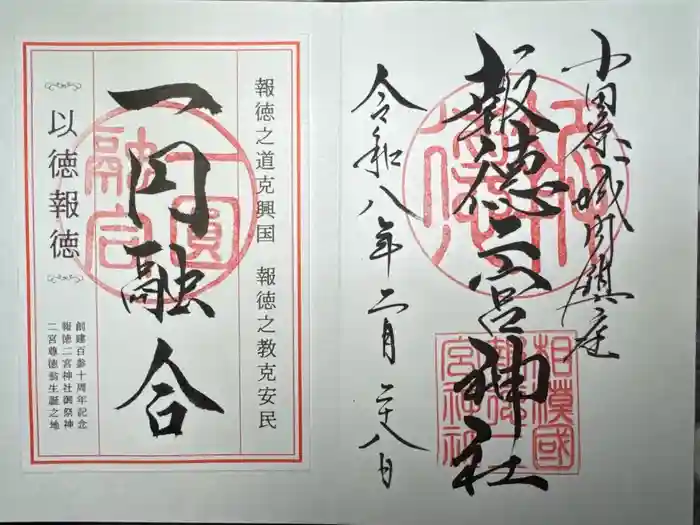 小田原城内鎮座
報徳二宮神社
相摸國
報徳二
宮神社
令和八年二月二十八日
報徳之道克興国 報徳之教克安民
一円融合
一圓
融合
以徳報徳
創建百参十周年記念
報徳二宮神社御祭神
二宮尊徳翁生誕之地